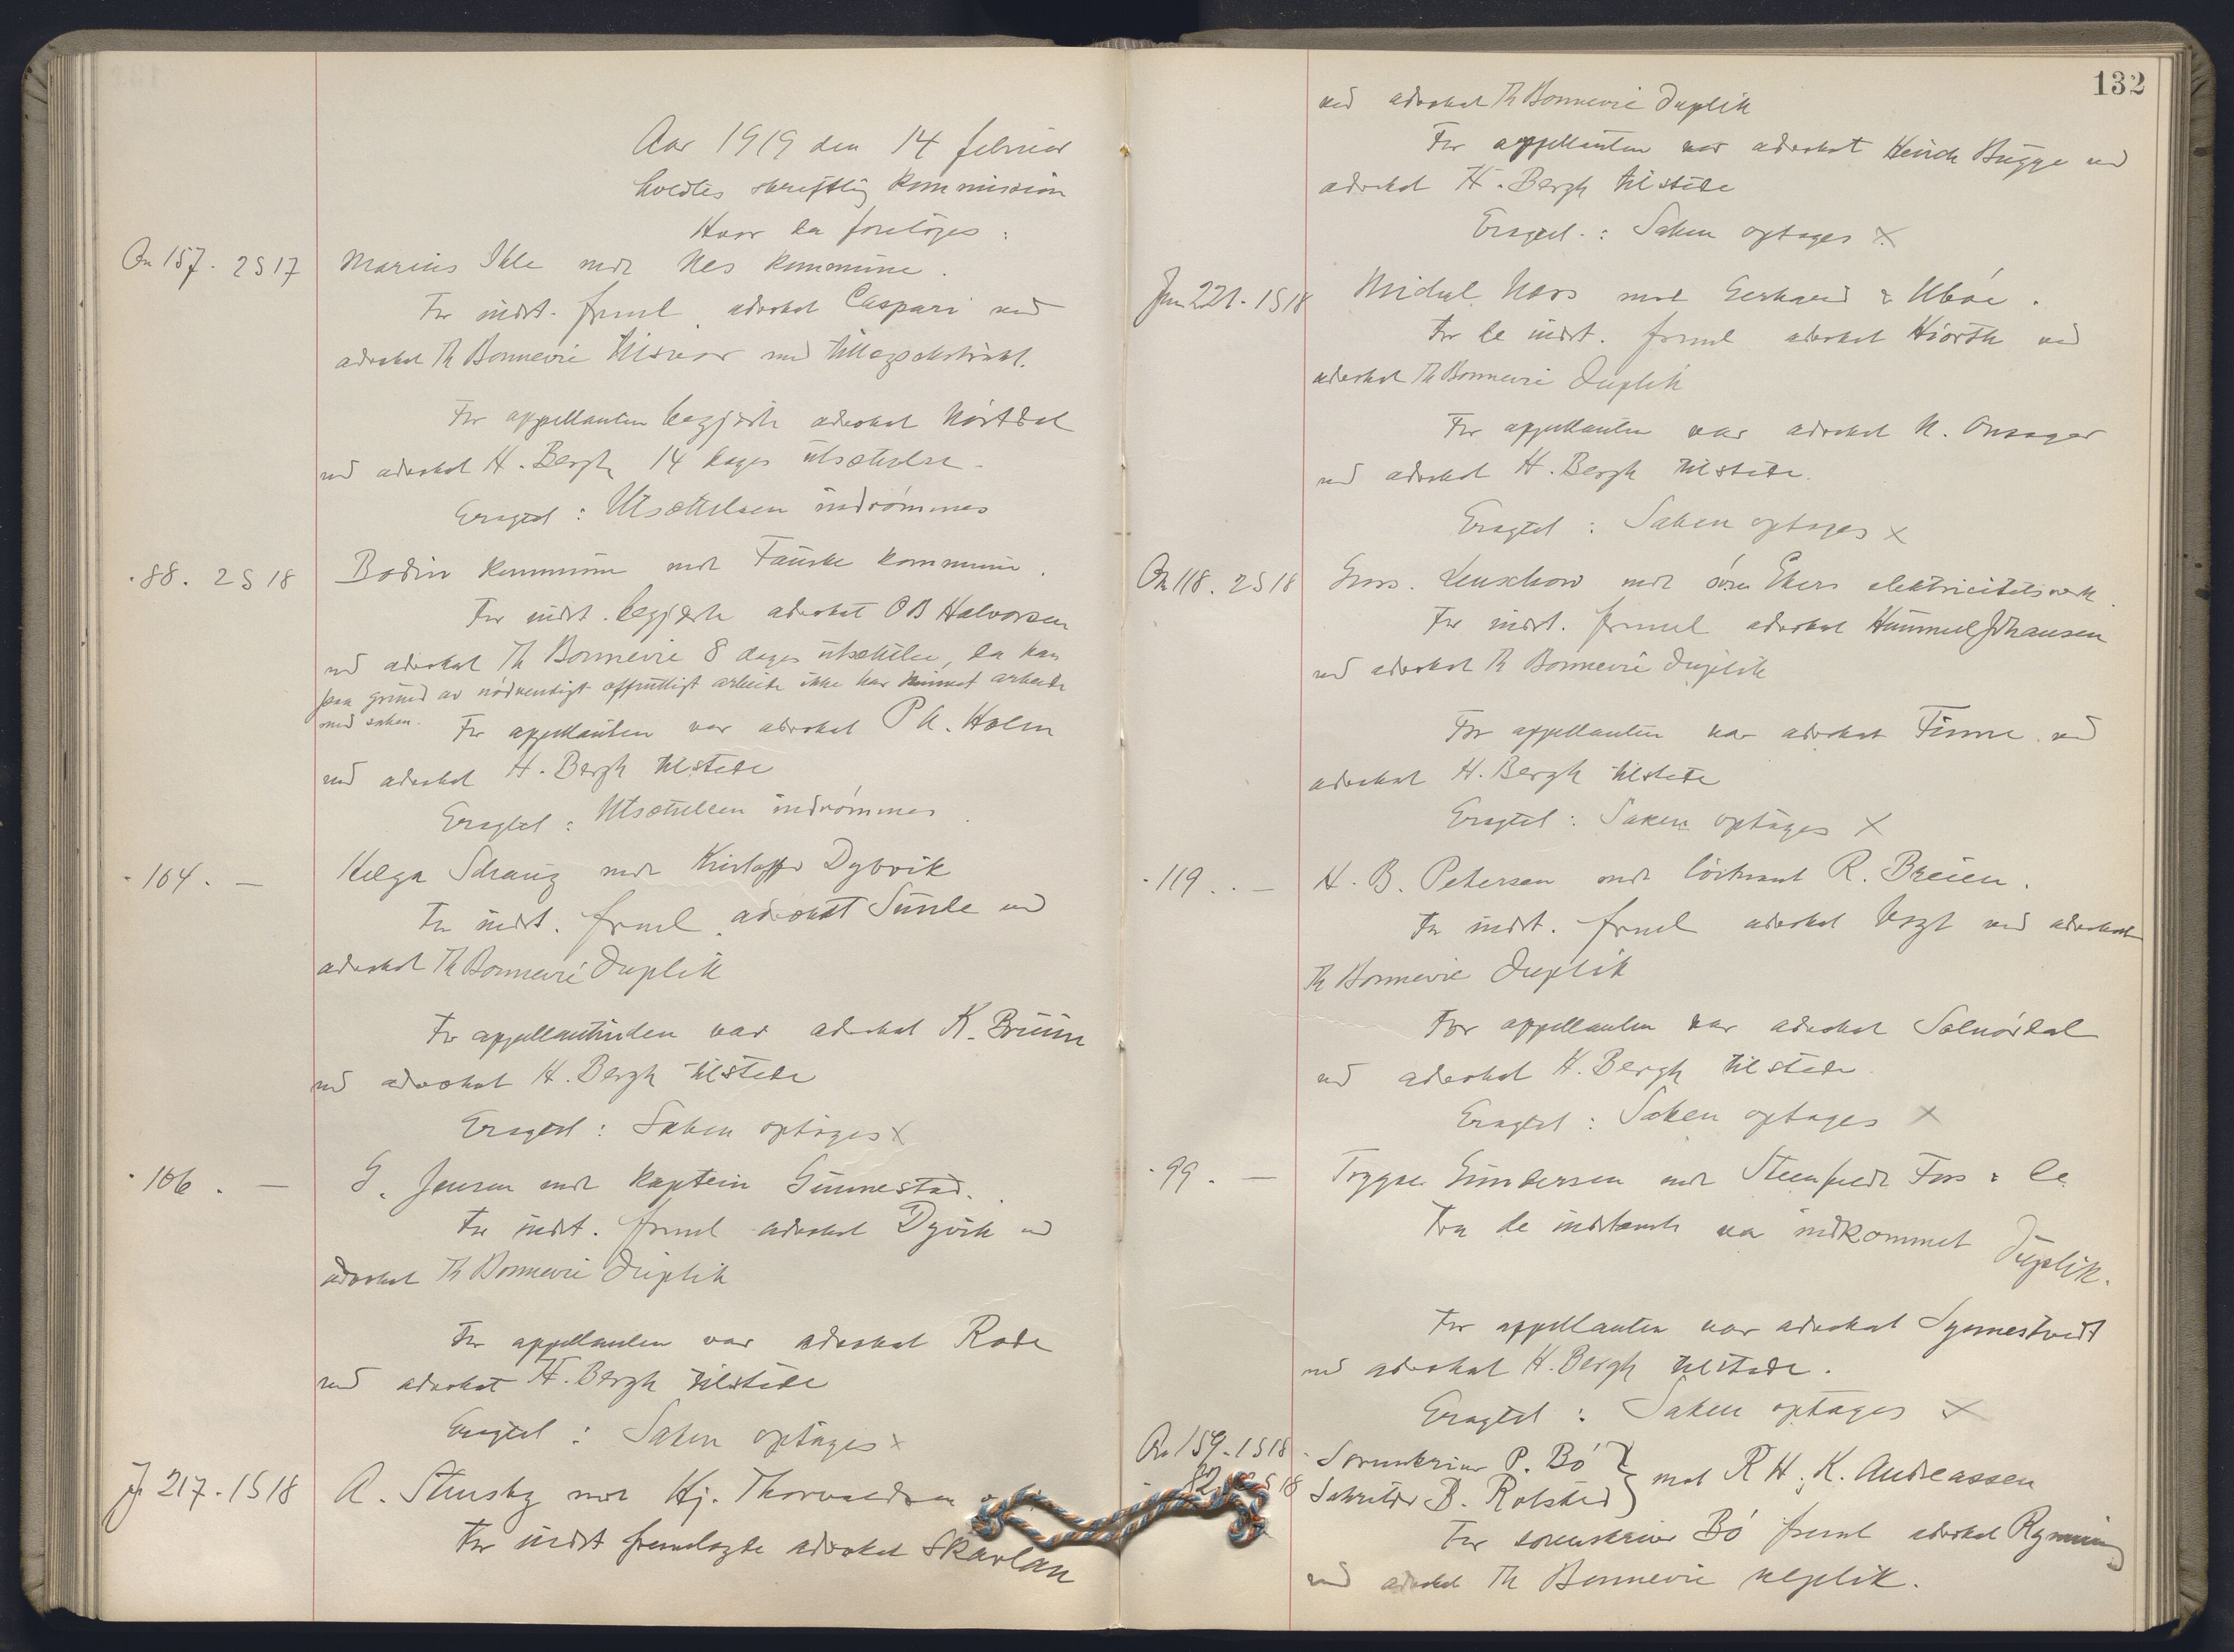 Aar 1919 den 14 februar
holdtes skriftlig Kommission
Hvor da foretoges:
On 157. 2 S 17 Marius Ihle mot Nes kommune.
For indst. freml. advokat Caspari ved
advokat Th Bonnevie tilsvar med tillægsekstrakt.
For appellanten begjærte advokat Nórtdal
ved advokat H. Bergh 14 dages utsættelse.
Eragtet: Utsættelsen indrómmes
- 88. 2 S 18 Bodin kommune mot Fauske kommune.
For indst. begjærte advokat O B Halvorsen
ved advokat Th Bonnevie 8 dages utsættelse, da han
paa grund av nódvendigt offentligt arbeide ikke har kunnet arbeide
med saken. For appellanten var advokat P A. Holm
ved advokat H. Bergh tilstede
Eragtet: Utsættelsen indrómmes.
- 104. — Helga Schanz mot Kristoffer Dybvik
For indst. freml. advokat Sunde ved
advokat Th Bonnevie Duplik
For appellantinden var advokat K. Bruun
ved advokat H. Bergh tilstede
Eragtet: Saken optages x
- 106. — G. Jensen mot kaptein Gunnestad.
For indst. freml advokat Dyvik ved
advokat Th Bonnevie Duplik
For appellanten var advokat Rode
ved advokat H. Bergh tilstede
Eragtet: Saken optages x
217. 1 S 18 A. Stensby mot Hj. Thorvaldsen
For indst fremlagde advokat Skarlan
132
ved advokat Th Bonnevie Duplik
For appellanten var advokat Henrik Bugge ved
advokat H. Bergh tilstede
Eragtet.: Saken optages x
221. 1 S 18 Michal Næss mot Gerhard & Ubóe.
For de indst. freml advokat Hiorth ved
advokat Th Bonnevie Duplik
For appellanten var advokat N. Onsager
ved advokat H. Bergh tilstede.
Eragtet: Saken optages x
On 118. 2 S 18 Gros. Lenschow mot óvre Ekers elektricitetsverk.
For indst. freml advokat Hummel Johansen
ved advokat Th Bonnevie Duplik
For appellanten var advokat Finne ved
advokat H. Bergh tilstede
Eragtet: Saken optages x
- 119. — H. B. Petersen mot lóitnant R. Breien.
For indst. freml advokat Vogt ved advokat
Th Bonnevie Duplik
For appellanten var advokat Solnórdal
ved advokat H. Bergh tilstede.
Eragtet: Saken optages x
- 99. — Trygve Gundersen mot Steenfeldt Foss & Co
Fra de indstevnte var indkommet Duplik.
For appellanten var advokat Synnestvedt
ved advokat H. Bergh tilstede.
Eragtet: Saken optages x
On 159. 1 S 18 Sorenskriver P. Bó
82 S 18 B. Rolsted } mot R H. K. Andreassen
For sorenskriver Bó freml advokat Rynning
ved advokat Th Bonnevie replik.